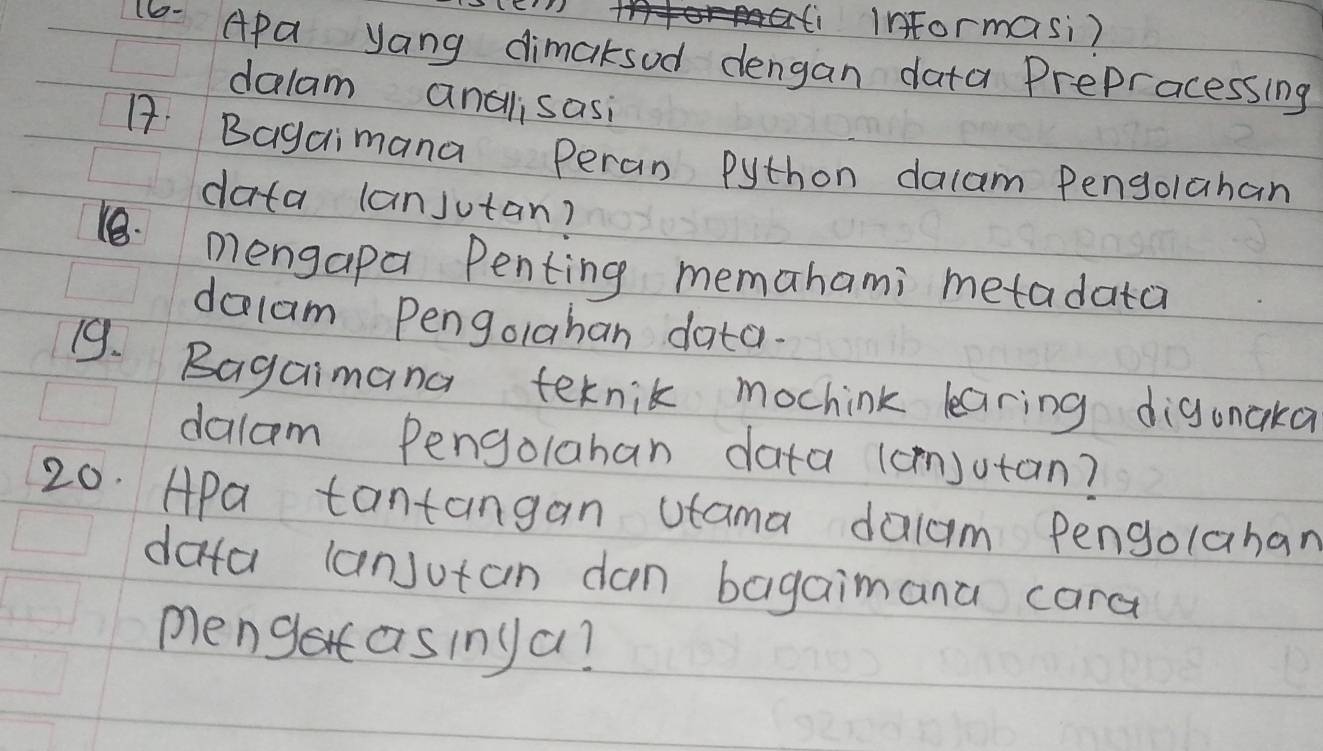 Informasi?
16. Apa yang dimaksud dengan data Prepracessing
dalam analisasi
17. Bagaimana Peran Python dalam Pengolahan
data lanjutan?
18. mengapa Penting memahami metadata
dalam Pengolahan data.
19. Bagaimana teknik mochink learing digunaka
dalam Pengolahan data lanjutan?
20. Apa tantangan utama dalam Pengolahan
data lanjutan dan bagaimana cara
mengatasinya?